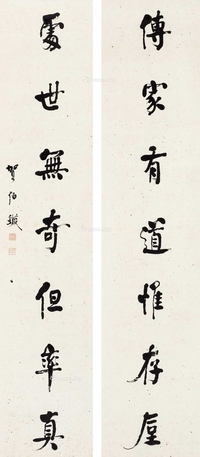 傳家有道惟存厚
處世無奇但率真
賀伯箴